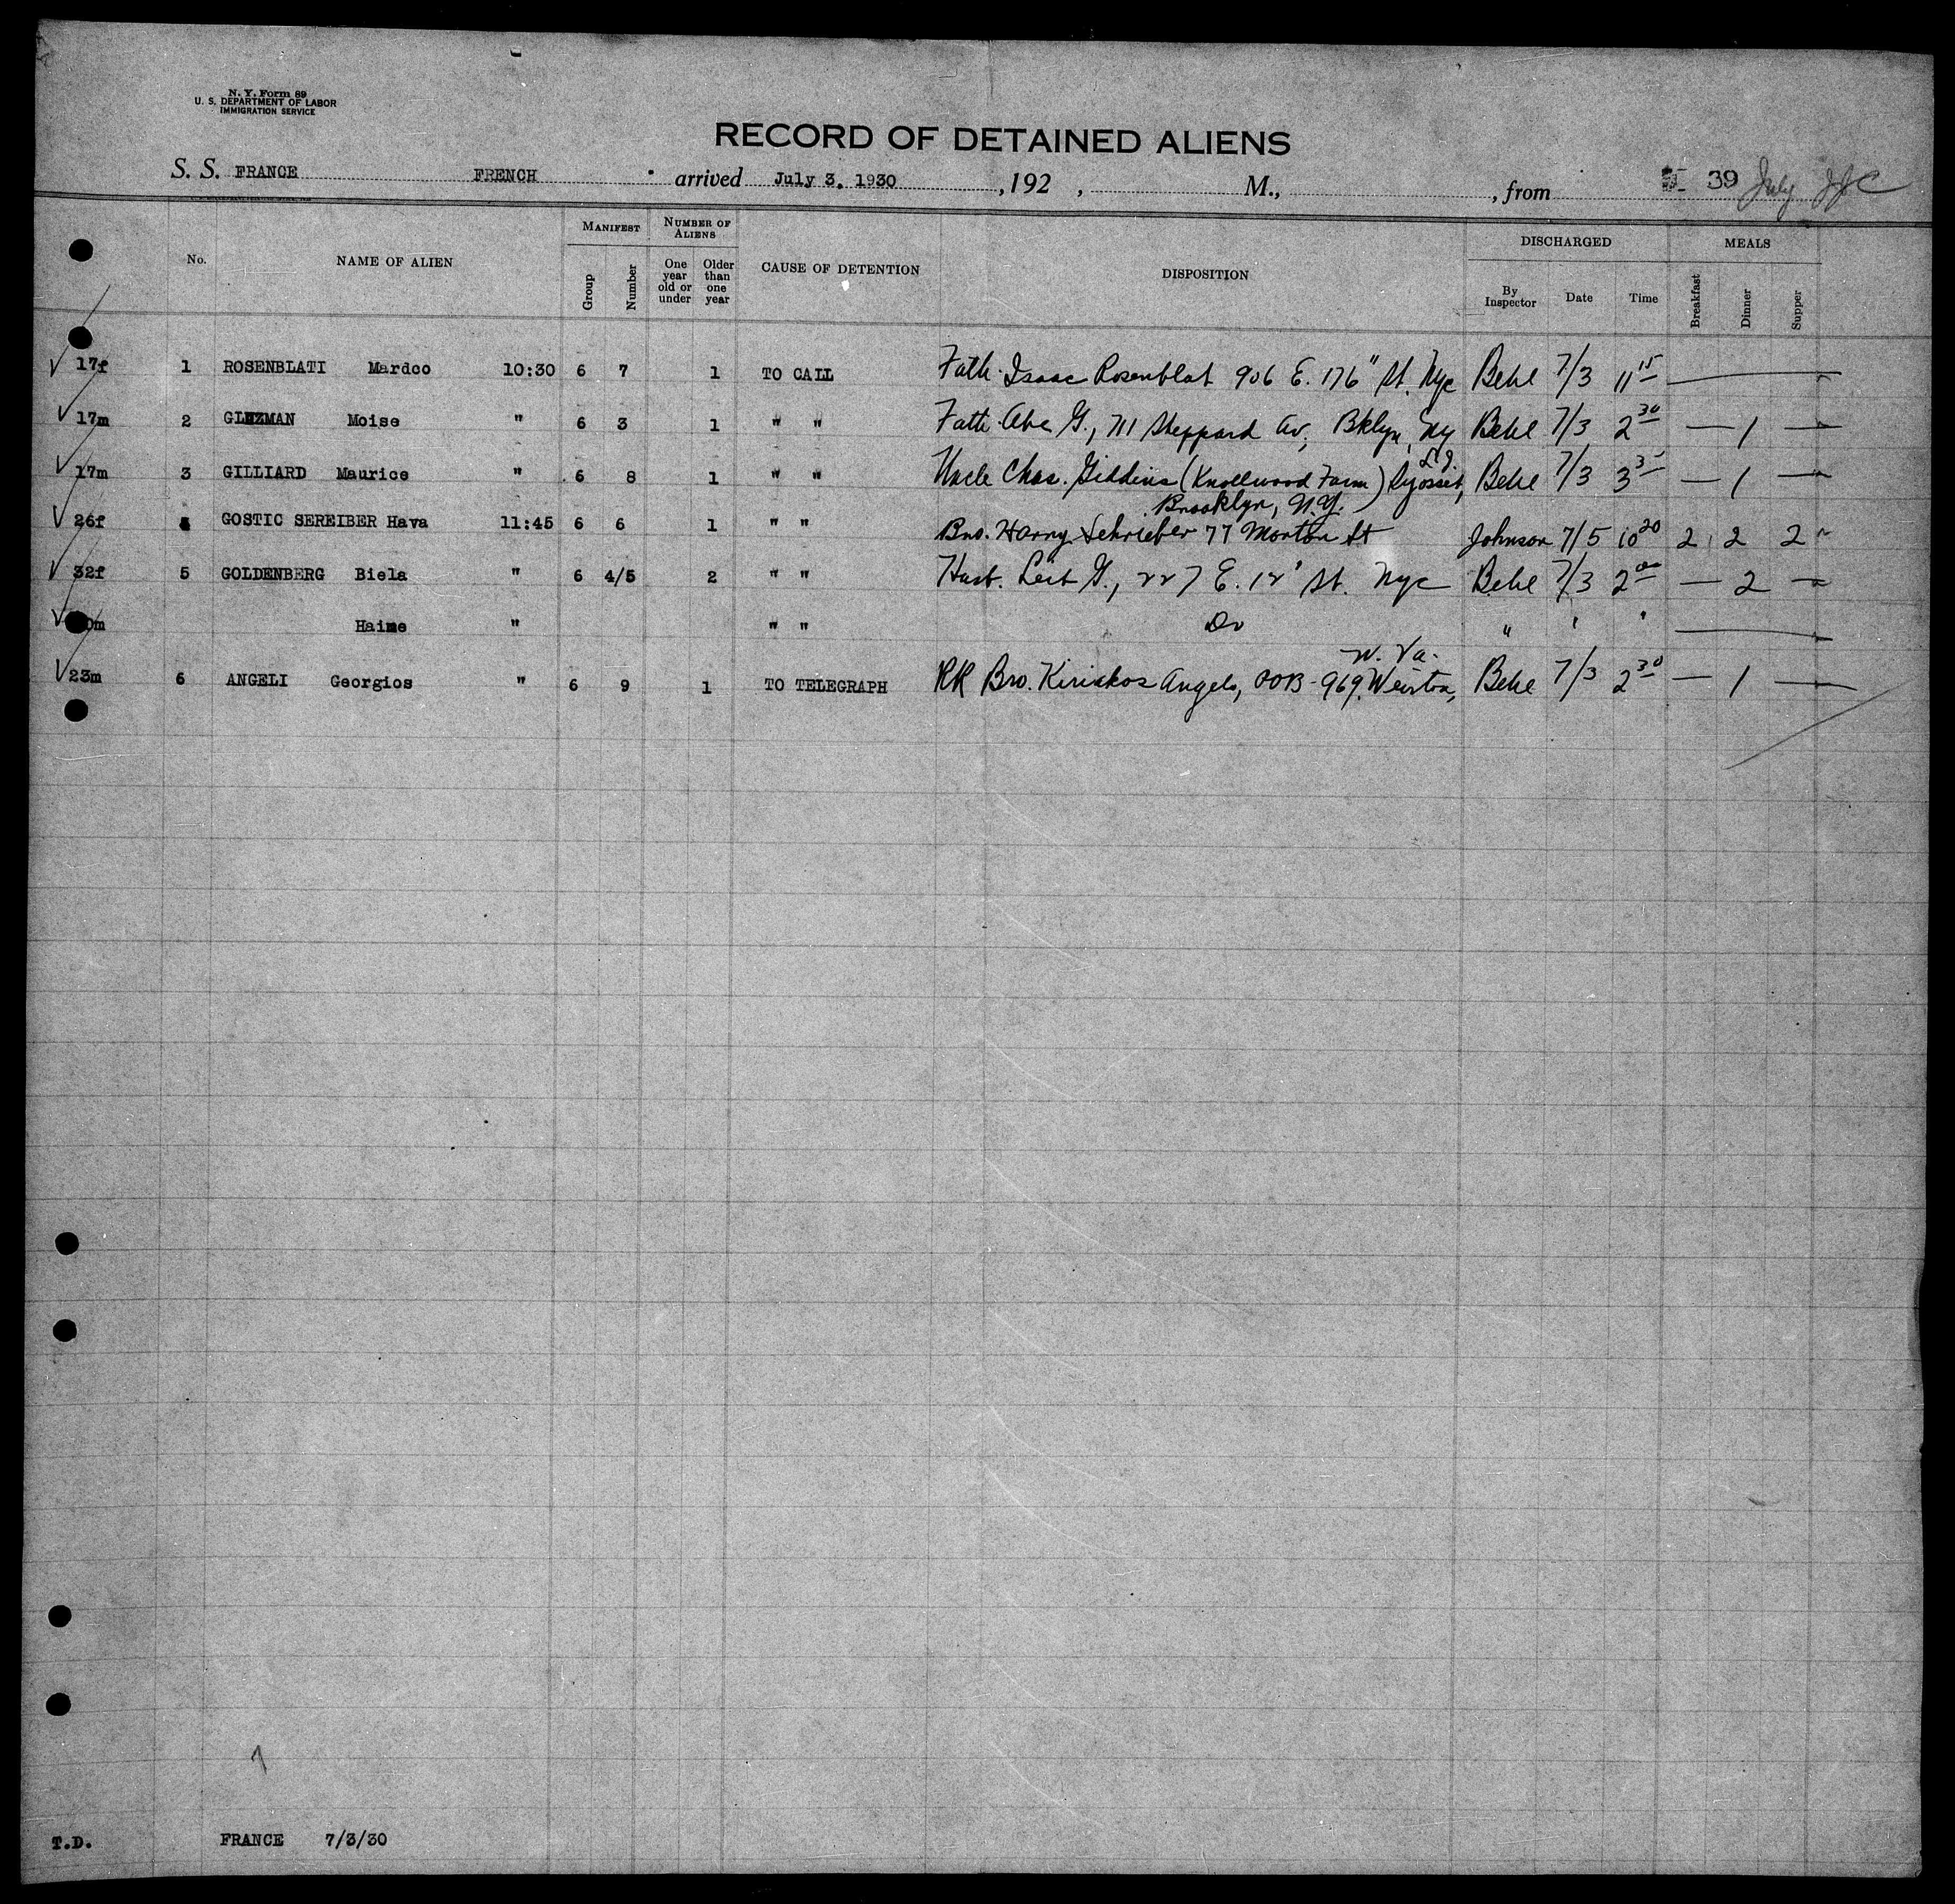 N. Y. Form 89
U. S. DEPARTMENT OF LABOR
IMMIGRATION SERVICE
RECORD OF DETAINED ALIENS
S. S. FRANCE FRENCH arrived July 3, 1930, 192 , M., , from 39 July
No. NAME OF ALIEN MANIFEST Group Number NUMBER OF ALIENS One year old or under Older than one year CAUSE OF DETENTION DISPOSITION DISCHARGED By Inspector Date Time MEALS Breakfast Dinner Supper
17f 1 ROSENBLATI Mardco 10:30 6 7 1 TO CALL Fath. Isaac Rosenblat 906 E. 176" St. Nyc 7/3 11 15 —
17m 2 GLEZMAN Moise " 6 3 1 " " Fath. Abe G., 711 Sheppard Av, Bklyn, Ny 7/3 2 30 — 1 —
17m 3 GILLIARD Maurice " 6 8 1 " " Uncle Chas. Giddins (Knollwood Farm) Syosset, L.I. 7/3 3 — 1 —
26f GOSTIC SEREIBER Hava 11:45 6 6 1 " " Bro. Harry Schrieber 77 Morton St Brooklyn, N.Y. Johnson 7/5 10 20 2 2 2
32f 5 GOLDENBERG Biela " 6 4/5 2 " " Husb. G., 227 E. 12' St. Nyc 7/3 2 00 — 2 —
0m Haime " " " Do " " " —
23m 6 ANGELI Georgios " 6 9 1 TO TELEGRAPH RR Bro. Kiriakos Angelo, 969, Weirton, W. Va. 7/3 2 30 — 1 —
T.D. FRANCE 7/3/30